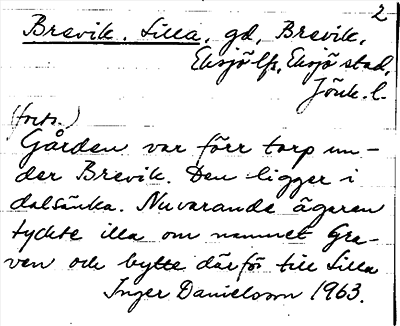 2
Brevik. Lilla, gd, Brevik,
Eksjö lfs, Eksjö stad,
Jönk. l.
(forts.)
Gården var förr torp un-
der Brevik. Den ligger i
dalsänka. Nuvarande ägaren
tyckte illa om namnet Gra-
ven och bytte därför till Lilla
Inger Danielsson 1963.